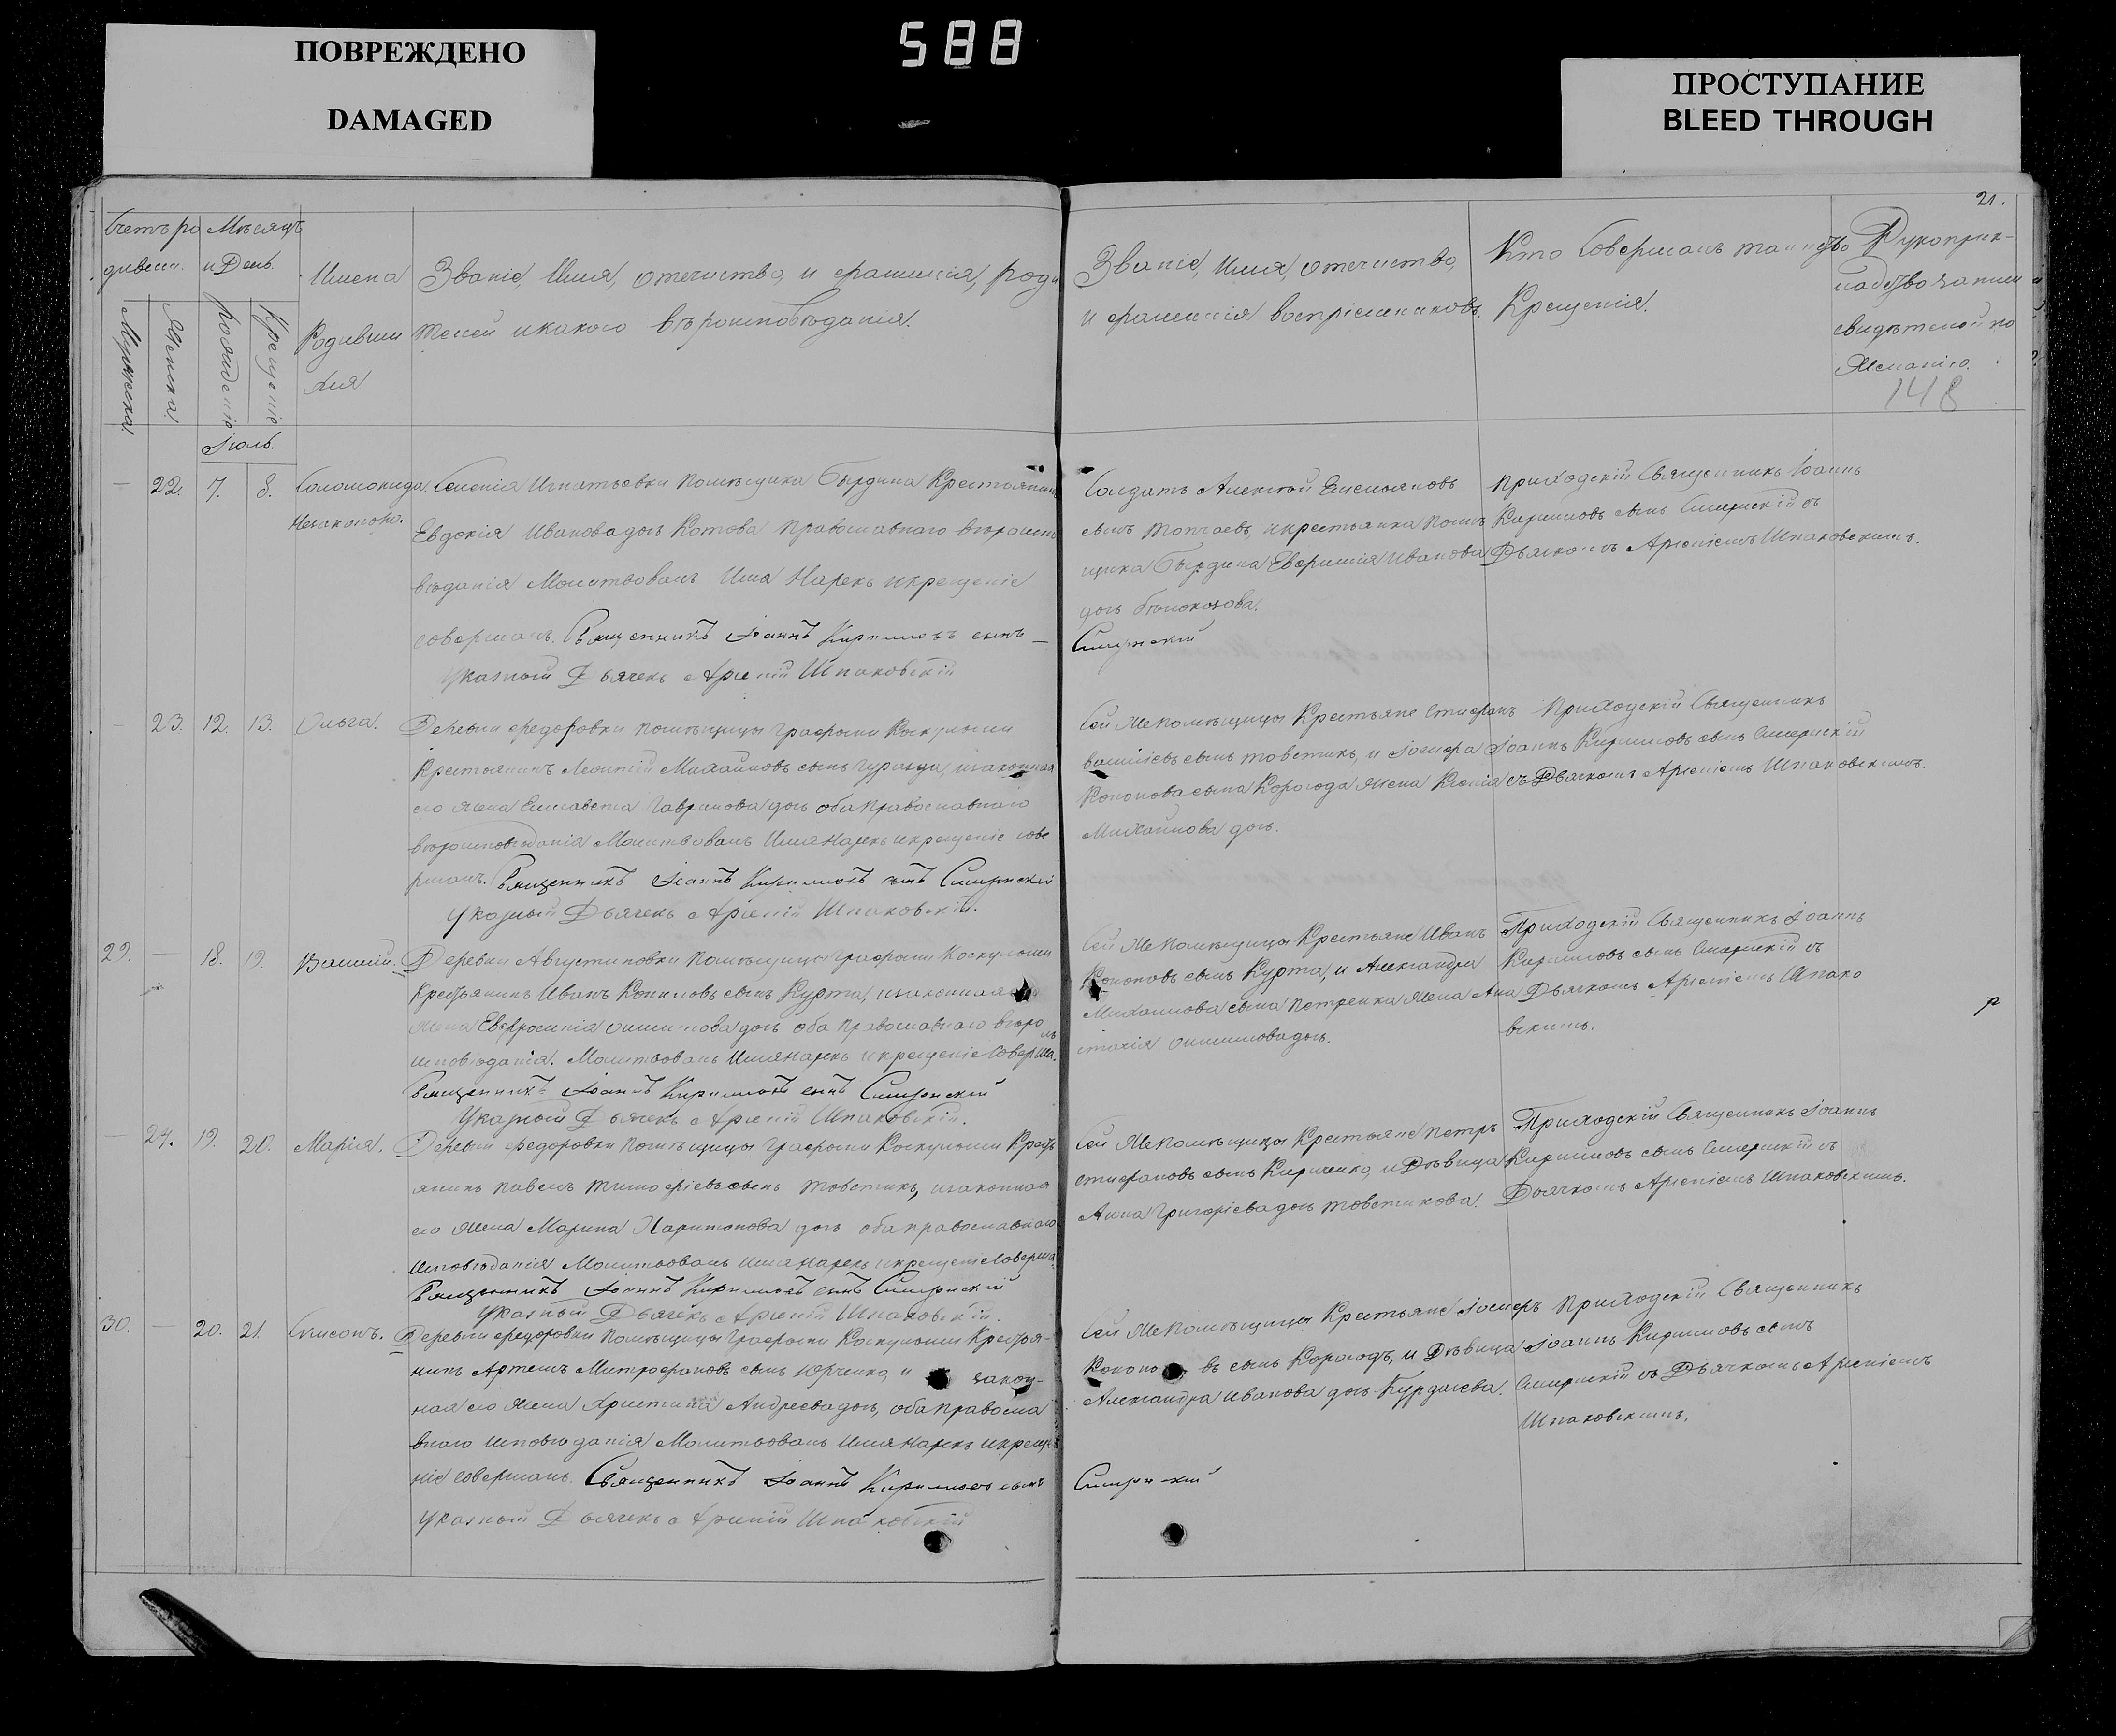 ПОВРЕЖДЕНО
DAMAGED
588
ПРОСТУПАНИЕ
BLEED THROUGH
21.
Счетъ ро
дивши.
Мѣсяцъ
и День.
Мужеска.
Женска.
Рожденіе
Крещеніе
Имена
Родивши
хся
Званіе, Имя, отечиство, и фамилія, роди
телей икакого вѣроисповѣданія.
Званіе, Имя, отечиство,
и фамилія воспріемниковъ.
Кто Совершалъ таинство
Крещенія.
Рукоприк-
ладство запис
свидѣтелей по
Желанію.
148
Іюль.
— 22. 7. 8. Соломонида
Незаконно.
Селенія Игнатьевки помѣщика Бырдина Крестьянка
Евдокія Иванова дочь Котова православнаго вѣроиспо
вѣданія Молитвовалъ Имя Нарекъ икрещеніе
совершалъ. Священникъ Іоаннъ Кирилловъ сынъ
Указный Дьячекъ Арсеній Шпаковскій
Солдатъ Алексѣй Емельяновъ
сынъ Топчаевъ, икрестьянка помѣ
щика Бырдина Евфимія Иванова
дочь
Смирнскій
Приходскій Священникъ Іоаннъ
Кирилловъ сынъ Смирнскій съ
Дьячкомъ Арсеніемъ Шпаковскимъ.
— 23. 12. 13. Ольга.
Деревни Федоровки помѣщицы Графини Коскулыши
Крестьянинъ Леонтій Михайловъ сынъ Гуразда, изаконная
его жена Елисавета Гаврилова дочь оба православнаго
вѣроисповѣданія Молитвовалъ Имя Нарекъ икрещеніе сове
ршалъ. Священникъ Іоаннъ Кирилловъ сынъ Смирнскій
Указный Дьячекъ Арсеній Шпаковскій.
Сей Же помѣщицы Крестьяне Стефанъ
Василіевъ сынъ товстикъ, и Іосифа
Кононова сына Корогода жена Ксенія
Михайлова дочь.
Приходскій Священникъ
Іоаннъ Кирилловъ сынъ Смирнскій
съ Дьячкомъ Арсеніемъ Шпаковскимъ.
29. — 18. 19. Василій.
Деревни Августиновки Помѣщицы Графини Коскулыши
Крестьянинъ Иванъ Кониловъ сынъ Курта, изаконная
жена Евфросинія дочь оба православнаго вѣро
исповѣданія. Молитвовалъ Имя Нарекъ икрещеніе Соверша
лъ
Священникъ Іоаннъ Кирилловъ сынъ Смирнскій
Указный Дьячекъ Арсеній Шпаковскій.
Сей Же Помѣщицы Крестьяне Иванъ
Кононовъ сынъ Курта, и Александра
Михайлова сына Петренка жена Ана
стасія дочь.
Приходскій Священникъ Іоаннъ
Кирилловъ сынъ Смирнскій съ
Дьячкомъ Арсеніемъ Шпако
вскимъ.
— 24. 19. 20. Марія.
Деревни Федоровки помѣщицы Графини Коскулыши Кресть
янинъ Павелъ Тимофѣевъ сынъ Товстикъ, изаконная
его жена Марина Харитонова дочь оба православнаго
исповѣданія Молитвовалъ Имя Нарекъ икрещеніе Соверша
Священникъ Іоаннъ Кирилловъ сынъ Смирнскій
Указный Дьячекъ Арсеній Шпаковскій.
Сей Же Помѣщицы Крестьяне петръ
Стефановъ сынъ Кириченко, и Дѣвица
Анна Григоріева дочь товстикова.
Приходскій Священникъ Іоаннъ
Кирилловъ сынъ Смирнскій съ
Дьячкомъ Арсеніемъ Шпаковскимъ.
30. — 20. 21. Симеонъ.
Деревни Федоровки Помѣщицы Графини Коскулыши Крестья-
нинъ Артемъ Митрофановъ сынъ Юрченко, и закон-
ная его жена Христина Андреева дочь, оба правосла
внаго исповѣданія Молитвовалъ Имя Нарекъ икреще
ніе Совершалъ. Священникъ Іоаннъ Кирилловъ сынъ
Указный Дьячекъ Арсеній Шпаковскій
Сей Же Помѣщицы Крестьяне Іосифъ
Конono въ сынъ Корогодъ, и Дѣвица
Александра Иванова дочь Курдичева.
Смирнскій
Приходскій Священникъ
Іоаннъ Кирилловъ сынъ
Смирнскій съ Дьячкомъ Арсеніемъ
Шпаковскимъ.